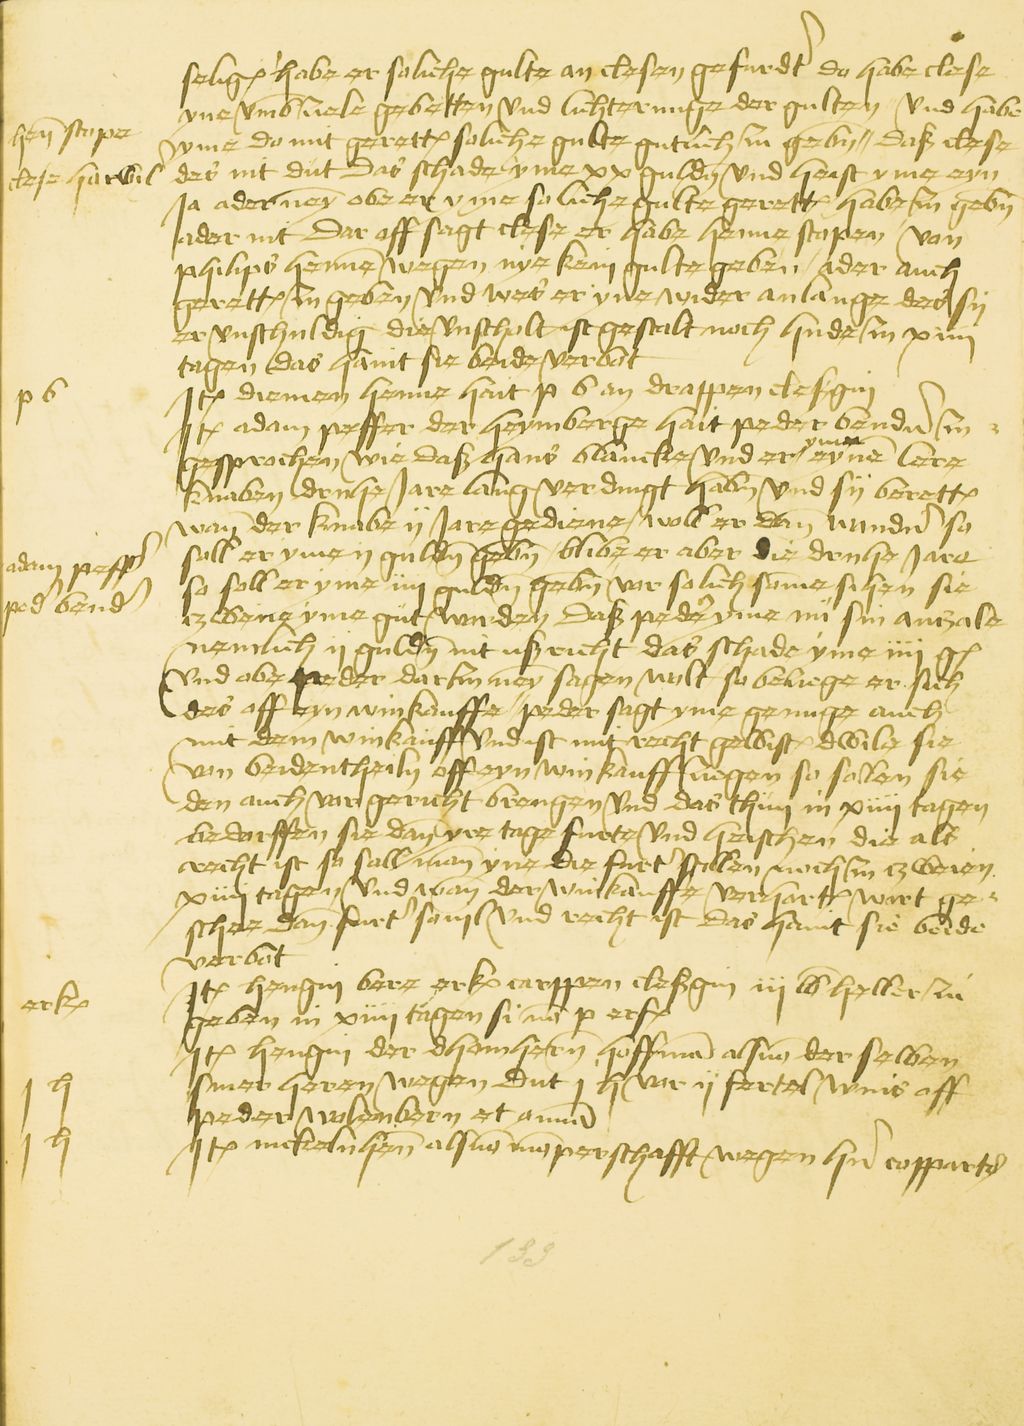 selig(e) habe er soliche gulte an clesen gefurdt do habe clese
yne umb uiele gebetten und lichterunge der gulten und habe
hen stope
clese harwil
yme do mit gerett soliche gulte gutlich zu gebn daß clese
des nit dut das schade yme xx guldn und heist yme eyn
Ja ader ney obe er yme soliche gulte gerett habe zu gebn
ader nit Dar off sagt clese er habe henne stopen von
philips henne wegen nye kein gulte geben ader auch
gerett zu geben und wes er yne wider anlange des sij
er unschuldig die unscholt ist gestalt noch hude zu xiiii
tagen das hait sie beide verbot
p b
Jt diemen henne hait p b an drappen cleßgin
Jt adam peffer der heymberge hait peder bender zu
gesprochen wie daß hans blancke und er yme eyne lere
knaben druhe Jare lang verdingt habn und sij berett
wan der knabe ij Jare gediene woll er dan wander so
adam peffer
ped bend
soll er yme ij guldn gebn blibe er aber die druhe Jare
so soll er yme iiij guldn gebn vor solich some sihen sie
czwene yme gut worden Daß peder yme nu sin anczale
nemlich ij guldn nit ußricht das schade yme iiij g
und obe peder darzu ney sagen wolt so beziege er sich
des off eyn winkauffe peder sagt yme genuge auch
mit dem winkauff und ist mit recht gewist dwile sie
von beidentheiln off eyn winkauff ziegen so sollen sie
den auch vor gericht brengen und das thun in xiiii tagen
bedorffen sie dan yre tage furte und heischen die als
recht ist so sall man yne die furt stellen noch zu czweien
xiiii tagen und wan der winkauffe verhort wirt ge-
schee dan furt souil und recht ist Das hait sie beide
verbot
erk
Jt hengin bere erk carppen cleßgin iij lb heller zu
geben in xiiii tagen si no p erf
Jt hengin der dhomhern hoffman alsuo der selben
j h
siner heren wegen dut j h vor ij fertel wins off
peder wolenbern et omnia
j h
Jt nickeln hen alsuo momperschafft wegen her copparts
199